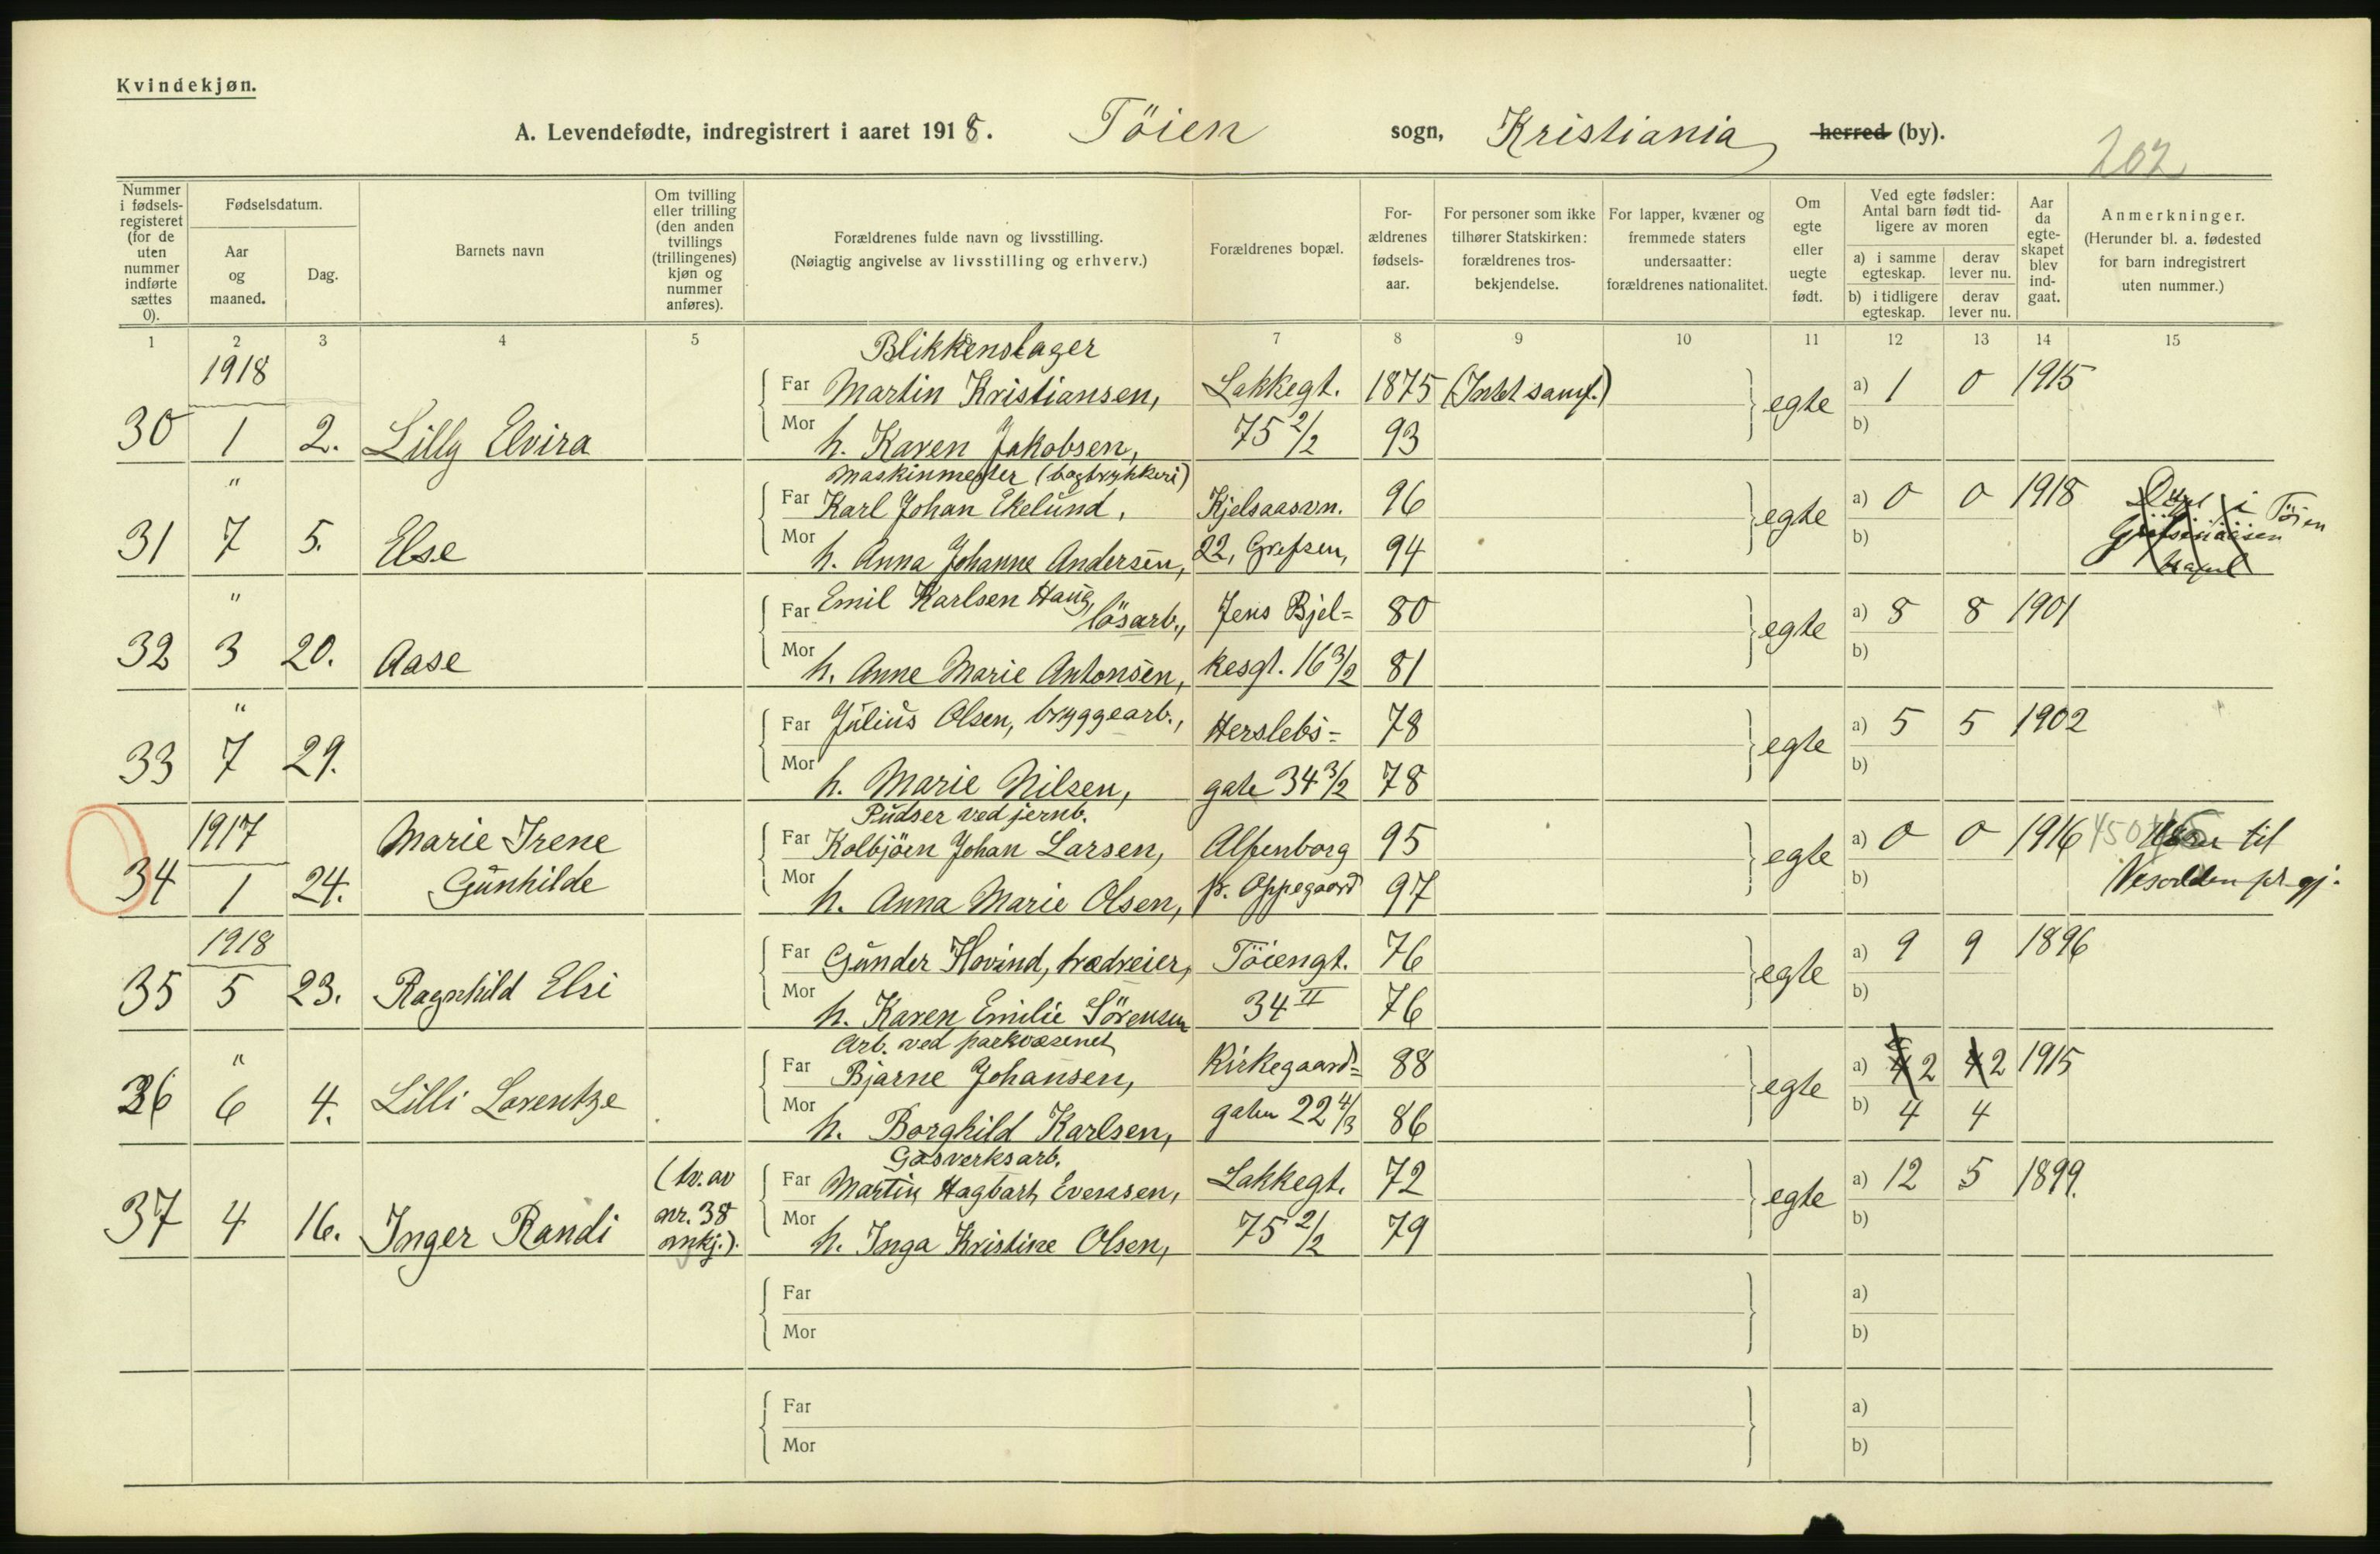 Kvindekjøn.
A. Levendefødte, indregistrert i aaret 1918. Töien sogn, Kristiania herred (by).
202
Nummer i fødsels-registeret (for de uten nummer indførte sættes 0).
Fødselsdatum.
Aar og maaned.
Dag.
Barnets navn
Om tvilling eller trilling (den anden tvillings (trillingenes) kjøn og nummer anføres).
Forældrenes fulde navn og livsstilling.
(Nøiagtig angivelse av livsstilling og erhverv.)
Forældrenes bopæl.
For-ældrenes fødsels-aar.
For personer som ikke tilhører Statskirken: forældrenes tros-bekjendelse.
For lapper, kvæner og fremmede staters undersaatter: forældrenes nationalitet.
Om egte eller uegte født.
Ved egte fødsler: Antal barn født tid-ligere av moren
a) i samme egteskap.
derav lever nu.
b) i tidligere egteskap.
derav lever nu.
Aar da egte-skapet blev ind-gaat.
Anmerkninger.
(Herunder bl. a. fødested for barn indregistrert uten nummer.)
1 2 3 4 5 7 8 9 10 11 12 13 14 15
1918 Blikkenslager
Far Martin Kristiansen, Lakkegt. 1875 (Intet samf.) a) 1 0 1915
30 1 2. Lilly Elvira Mor h. Karen Jakobsen, 75 2/2 93 egte b)
" Maskinmester (bogtrykkeri)
Far Karl Johan Ekelund, Kjelsaasvn. 96 a) 0 0 1918 i Töien
31 7 5. Else Mor h. Anna Johanne Andersen, 22, Grefsen, 94 egte b)
" Far Emil Karlsen Haug, lösarb., Jens Bjel= 80 a) 8 8 1901
32 3 20. Aase Mor h. Anne Marie Antonsen, kesgt. 16 3/2 81 egte b)
" Far Julius Olsen, bryggearb., Herslebs= 78 a) 5 5 1902
33 7 29. Mor h. Marie Nilsen, gate 34 3/2 78 egte b)
1917 Marie Irene Pudser ved jernb.
Far Kolbjöen Johan Larsen, Alfenborg 95 a) 0 0 1916 til
34 1 24. Gunhilde Mor h. Anna Marie Olsen, p. Oppegaard 97 egte b)
1918 Far Gunder Hovind, trædreier, Töiengt. 76 a) 9 9 1896
35 5 23. Ragnhild Elsi Mor h. Karen Emilie Sörensen 34 II 76 egte b)
" Arb. ved parkvæsenet
Far Bjarne Johansen, Kirkegaard= 88 a) 4 2 4 2 1915
36 6 4. Lilli Lorentze Mor h. Borghild Karlsen, gaten 22 4/3 86 egte b) 4 4
Gasverksarb.
(tv. av Far Martin Hagbart Evensen, Lakkegt. 72 a) 12 5 1899.
37 4 16. Inger Randi nr. 38 mkj.). Mor h. Inga Kristine Olsen, 75 2/2 79 egte b)
Far a)
Mor b)
Far a)
Mor b)